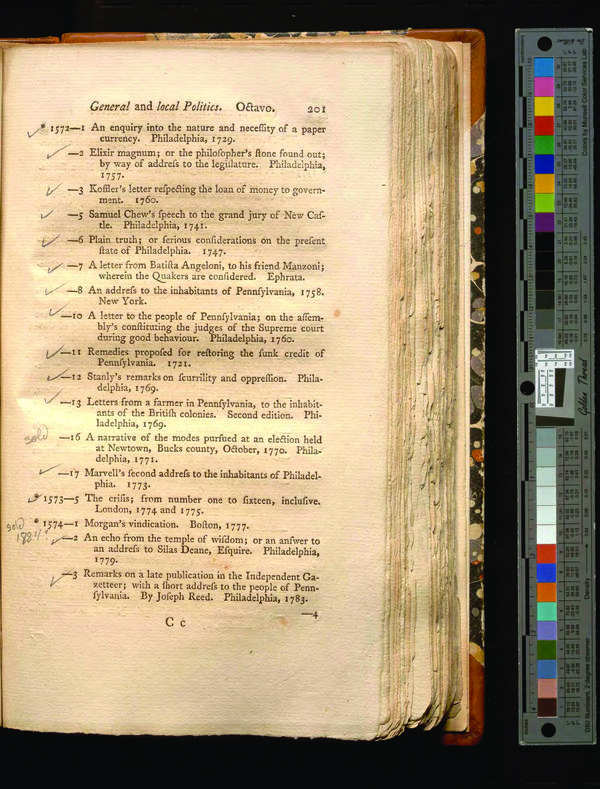 General and local Politics. Octavo. 201
* 1572—1 An enquiry into the nature and neceſſity of a paper
currency. Philadelphia, 1729.
—2 Elixir magnum; or the philoſopher's ſtone found out;
by way of addreſs to the legiſlature. Philadelphia,
1757.
—3 Koffler's letter reſpecting the loan of money to govern-
ment. 1760.
—5 Samuel Chew's ſpeech to the grand jury of New Caſ-
tle. Philadelphia, 1741.
—6 Plain truth; or ſerious conſiderations on the preſent
ſtate of Philadelphia. 1747.
—7 A letter from Batiſta Angeloni, to his friend Manzoni;
wherein the Quakers are conſidered. Ephrata.
—8 An addreſs to the inhabitants of Pennſylvania, 1758.
New York.
—10 A letter to the people of Pennſylvania; on the aſſem-
bly's conſtituting the judges of the Supreme court
during good behaviour. Philadelphia, 1760.
—11 Remedies propoſed for reſtoring the ſunk credit of
Pennſylvania. 1721.
—12 Stanly's remarks on ſcurrility and oppreſſion. Phila-
delphia, 1769.
—13 Letters from a farmer in Pennſylvania, to the inhabit-
ants of the Britiſh colonies. Second edition. Phi-
ladelphia, 1769.
sold —16 A narrative of the modes purſued at an election held
at Newtown, Bucks county, October, 1770. Phila-
delphia, 1771.
—17 Marvell's ſecond addreſs to the inhabitants of Philadel-
phia. 1773.
* 1573—5 The criſis; from number one to ſixteen, incluſive.
London, 1774 and 1775.
sold * 1574—1 Morgan's vindication. Boſton, 1777.
1884?
—2 An echo from the temple of wiſdom; or an anſwer to
an addreſs to Silas Deane, Eſquire. Philadelphia,
1779.
—3 Remarks on a late publication in the Independent Ga-
zetteer; with a ſhort addreſs to the people of Penn-
ſylvania. By Joſeph Reed. Philadelphia, 1783.
—4
C c
Colors by Munsell Color Services Lab
Golden Thread
Density